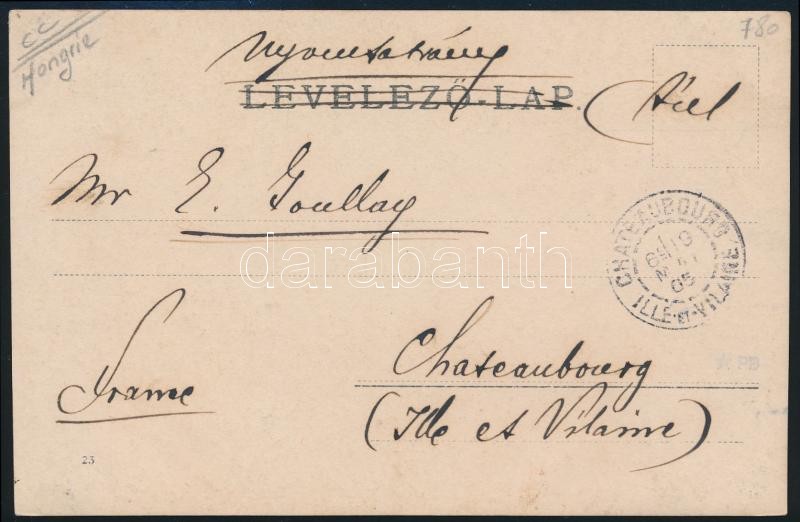 cc
Hongrie
780
Nyomtatvány
LEVELEZŐ-LAP.
Mr E. Goullay
CHATEAUBOURG
ILLE-ET-VILAINE
05
darabanth
Chateaubourg
France
(Ille et Vilaine)
23